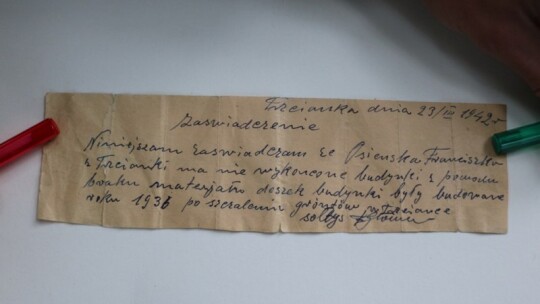 Trzcianka dnia 23/III 1942 r
Zaswiadczenie
Niniejszem zaswiadczam że Psienska Franciszka
z Trzcianki ma nie wykonczone budynki z powodu
braku materjału desek budynki były budowane
roku 1936 po scaleniu gróntów w Trzciance
sołtys